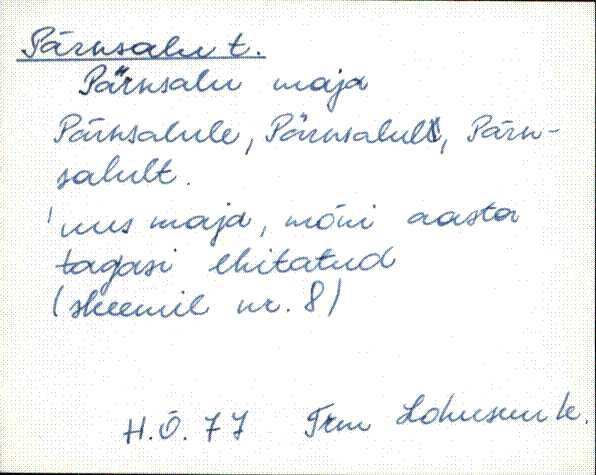 Pärnsalu t.
Pärnsalu maja
Pärnsalule, Pärnsalul, Pärn-
salult.
'uus maja, mõni aasta
tagasi ehitatud
(skeemil nr. 8)
H.Õ. 77 Trm Lohusuu k.